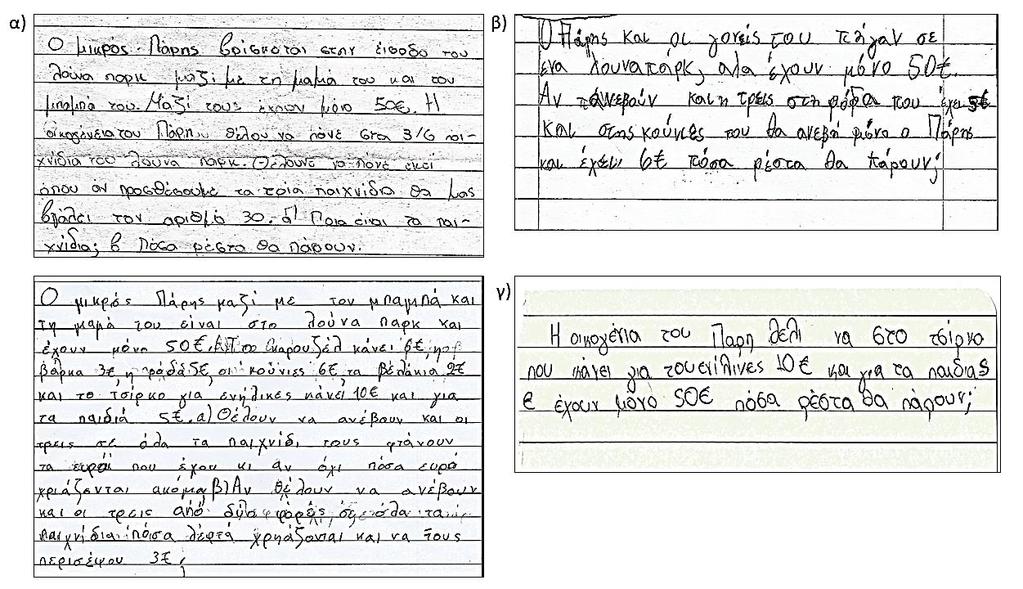 α)
Ο μικρός Πάρης βρίσκεται στην είσοδο του
λούνα παρκ μαζί με τη μαμά του και τον
μπαμπά του. Μαζί τους έχουν μόνο 50€. Η
οικογένεια του Πάρη θέλου να πάνε στα 3/6 παι-
χνίδια του λούνα παρκ. Θέλουνε να πάνε εκεί
όπου αν προσθέσουμε τα τρία παιχνίδια θα μας
βγάλει τον αριθμό 30. α) Ποια είναι τα παι-
χνίδια; β Πόσα ρέστα θα πάρουν.
β)
Ο Πάρης και οι γονείς του πήγαν σε
ένα λουναπάρκ, αλα έχουν μόνο 50€.
Αν τανεβούν και η τρεις στη ρόδα που έχει 5€
και στης κούνιες που θα ανεβή μόνο ο Πάρης
και έχει 6€ πόσα ρέστα θα πάρουν;
Ο μικρός Πάρης μαζί με τον μπαμπά και
τη μαμά του είναι στο λούνα παρκ και
έχουν μόνο 50€. Το καρουζέλ κάνει 6€, η
βάρκα 3€, η ρόδα 5€, οι κούνιες 6€ τα βελάκια 2€
και το τσίρκο για ενήλικες κάνει 10€ και για
τα παιδιά 5€. α) Θέλουν να ανέβουν και οι
τρεις σε όλα τα παιχνίδι τους φτάνουν
τα ευρά που έχου κι αν όχι πόσα ευρά
χριάζονται ακόμα β) Αν θέλουν να ανέβουν
και οι τρεις από δύο φορές σε όλα τα
παιχνίδια πόσα λεφτά χρηάζονται και να τους
περισέψου 3€;
γ)
Η οικογένια του Παρη θέλι να στο τσίρκο
που κάνει για τους ενίλινες 10€ και για τα παιδια 5
€ έχουν μόνο 50€ πόσα ρέστα θα πάρουν;